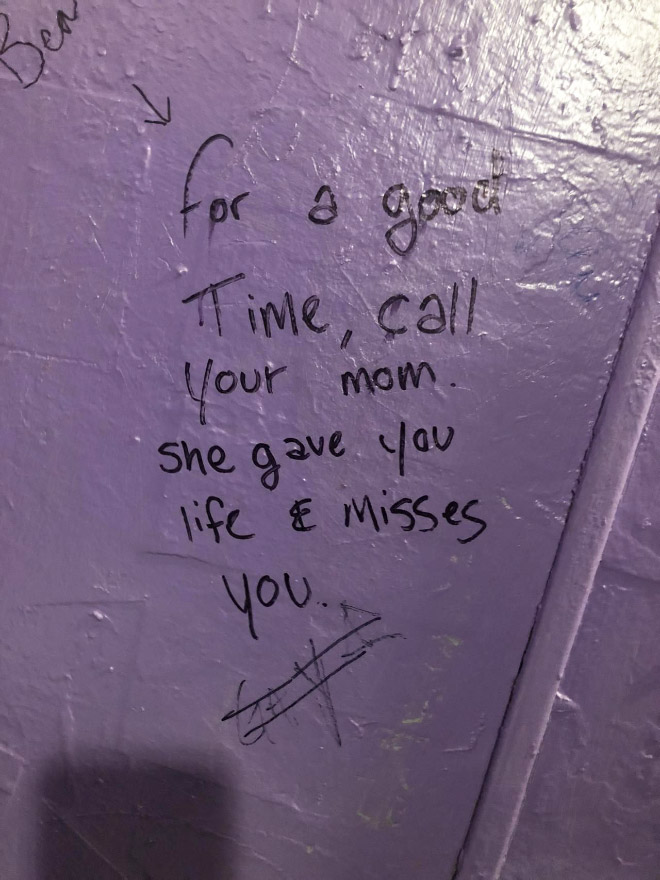 Ben
for a good
Time, call
your mom.
she gave you
life & misses
you.